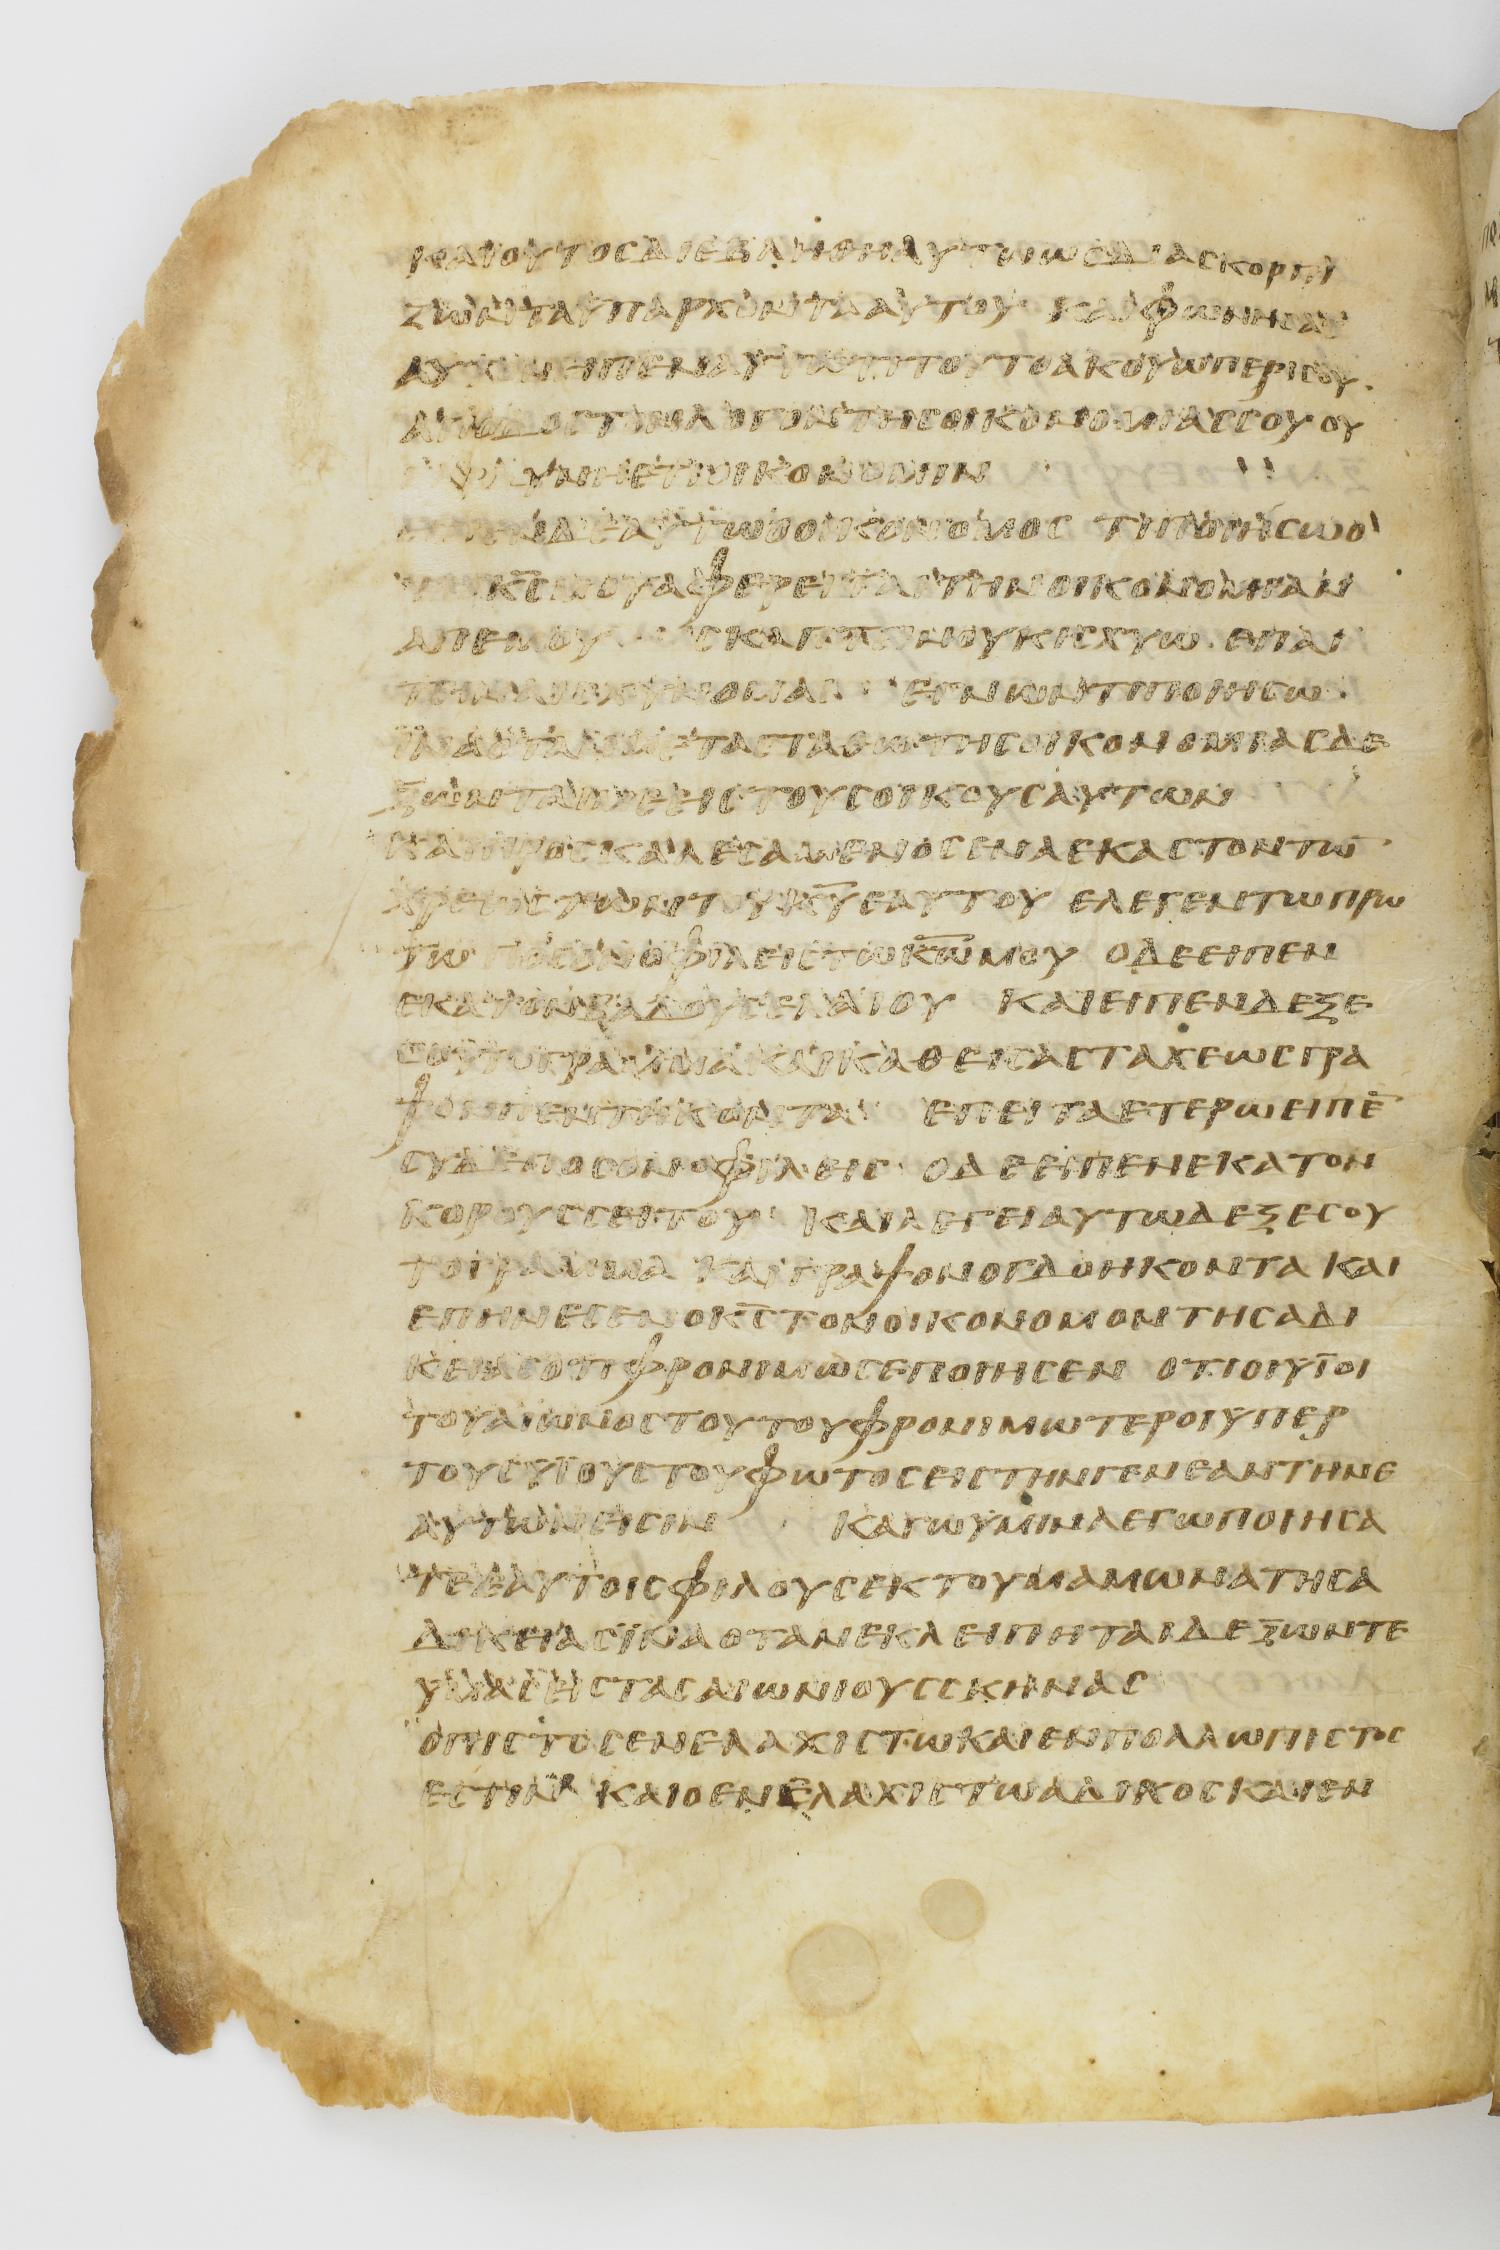 ΚΑΙΟΥΤΟСΔΙΕΒΛΗΘΗΑΥΤΩΩСΔΙΑСΚΟΡΠΙ
ΖΩΝΤΑΥΠΑΡΧΟΝΤΑΑΥΤΟΥ ΚΑΙΦΩΝΗСΑС
ΑΥΤΟΝΕΙΠΕΝΑΥΤΩΤΙΤΟΥΤΟΑΚΟΥΩΠΕΡΙСΟΥ
ΑΠΟΔΟСΤΟΝΛΟΓΟΝΤΗСΟΙΚΟΝΟΜΙΑССΟΥΟΥ
ΔΥΝΗΕΤΙΟΙΚΟΝΟΜΙΝ
ΔΕΕΑΥΤΩΟΟΙΚΟΝΟΜΟС ΤΙΠΟΙΗСΩΟ
ΚС̅ΜΟΥΑΦΕΡΕΙΤΑΙΤΗΝΟΙΚΟΝΟΜΙΑΝ
ΑΠΕΜΟΥ СΚΑΠΤΙΝΟΥΚΙСΧΥΩ ΕΠΑΙ
ΤΕΙΝΑΙСΧΥΝΟΜΑΙ ΕΓΝΩΝΤΙΠΟΙΗСΩ
ΙΝΑΟΤΑΝΜΕΤΑСΤΑΘΩΤΗСΟΙΚΟΝΟΜΙΑСΔΕ
ΞΩΝΤΑΙΜΕΕΙСΤΟΥСΟΙΚΟΥСΑΥΤΩΝ
ΚΑΙΠΡΟСΚΑΛΕСΑΜΕΝΟСΕΝΑΕΚΑСΤΟΝΤΩ̅
ΧΡΕΟΦΙΛΕΤΩΝΤΟΥΚΥ̅ΕΑΥΤΟΥ ΕΛΕΓΕΝΤΩΠΡΩ
ΤΩ ΠΟСΟΝΟΦΙΛΕΙСΤΩΚΩ̅ΜΟΥ ΟΔΕΕΙΠΕΝ
ΕΚΑΤΟΝΒΑΔΟΥСΕΛΑΙΟΥ ΚΑΙΕΙΠΕΝΔΕΞΕ
СΟΥΤΟΓΡΑΜΜΑΚΑΙΚΑΘΕΙСΑСΤΑΧΕΩСΓΡΑ
ΨΟΝΠΕΝΤΗΚΟΝΤΑ ΕΠΕΙΤΑΕΤΕΡΩΕΙΠΕ̅
СΥΔΕΠΟСΟΝΟΦΙΛΕΙС ΟΔΕΕΙΠΕΝΕΚΑΤΟΝ
ΚΟΡΟΥССΕΙΤΟΥ ΚΑΙΛΕΓΕΙΑΥΤΩΔΕΞΕСΟΥ
ΤΟΓΡΑΜΜΑ ΚΑΙΓΡΑΨΟΝΟΓΔΟΗΚΟΝΤΑ ΚΑΙ
ΕΠΗΝΕСΕΝΟΚС̅ΤΟΝΟΙΚΟΝΟΜΟΝΤΗСΑΔΙ
ΚΕΙΑСΟΤΙΦΡΟΝΙΜΩСΕΠΟΙΗСΕΝ ΟΤΙΟΙΥΪΟΙ
ΤΟΥΑΙΩΝΟСΤΟΥΤΟΥΦΡΟΝΙΜΩΤΕΡΟΙΥΠΕΡ
ΤΟΥСΥΪΟΥСΤΟΥΦΩΤΟСΕΙСΤΗΝΓΕΝΕΑΝΤΗΝΕ
ΑΥΤΩΝΕΙСΙΝ ΚΑΓΩΥΜΙΝΛΕΓΩΠΟΙΗСΑ
ΤΕΕΑΥΤΟΙСΦΙΛΟΥСΕΚΤΟΥΜΑΜΩΝΑΤΗСΑ
ΔΙΚΕΙΑСΪΝΑΟΤΑΝΕΚΛΕΙΠΗΤΑΙΔΕΞΩΝΤΕ
ΥΜΑСΕΙСΤΑСΑΙΩΝΙΟΥССΚΗΝΑС
ΟΠΙСΤΟСΕΝΕΛΑΧΙСΤΩΚΑΙΕΝΠΟΛΛΩΠΙСΤΟС
ΕСΤΙΝ ΚΑΙΟΕΝΕΛΑΧΙСΤΩΑΔΙΚΟСΚΑΙΕΝ